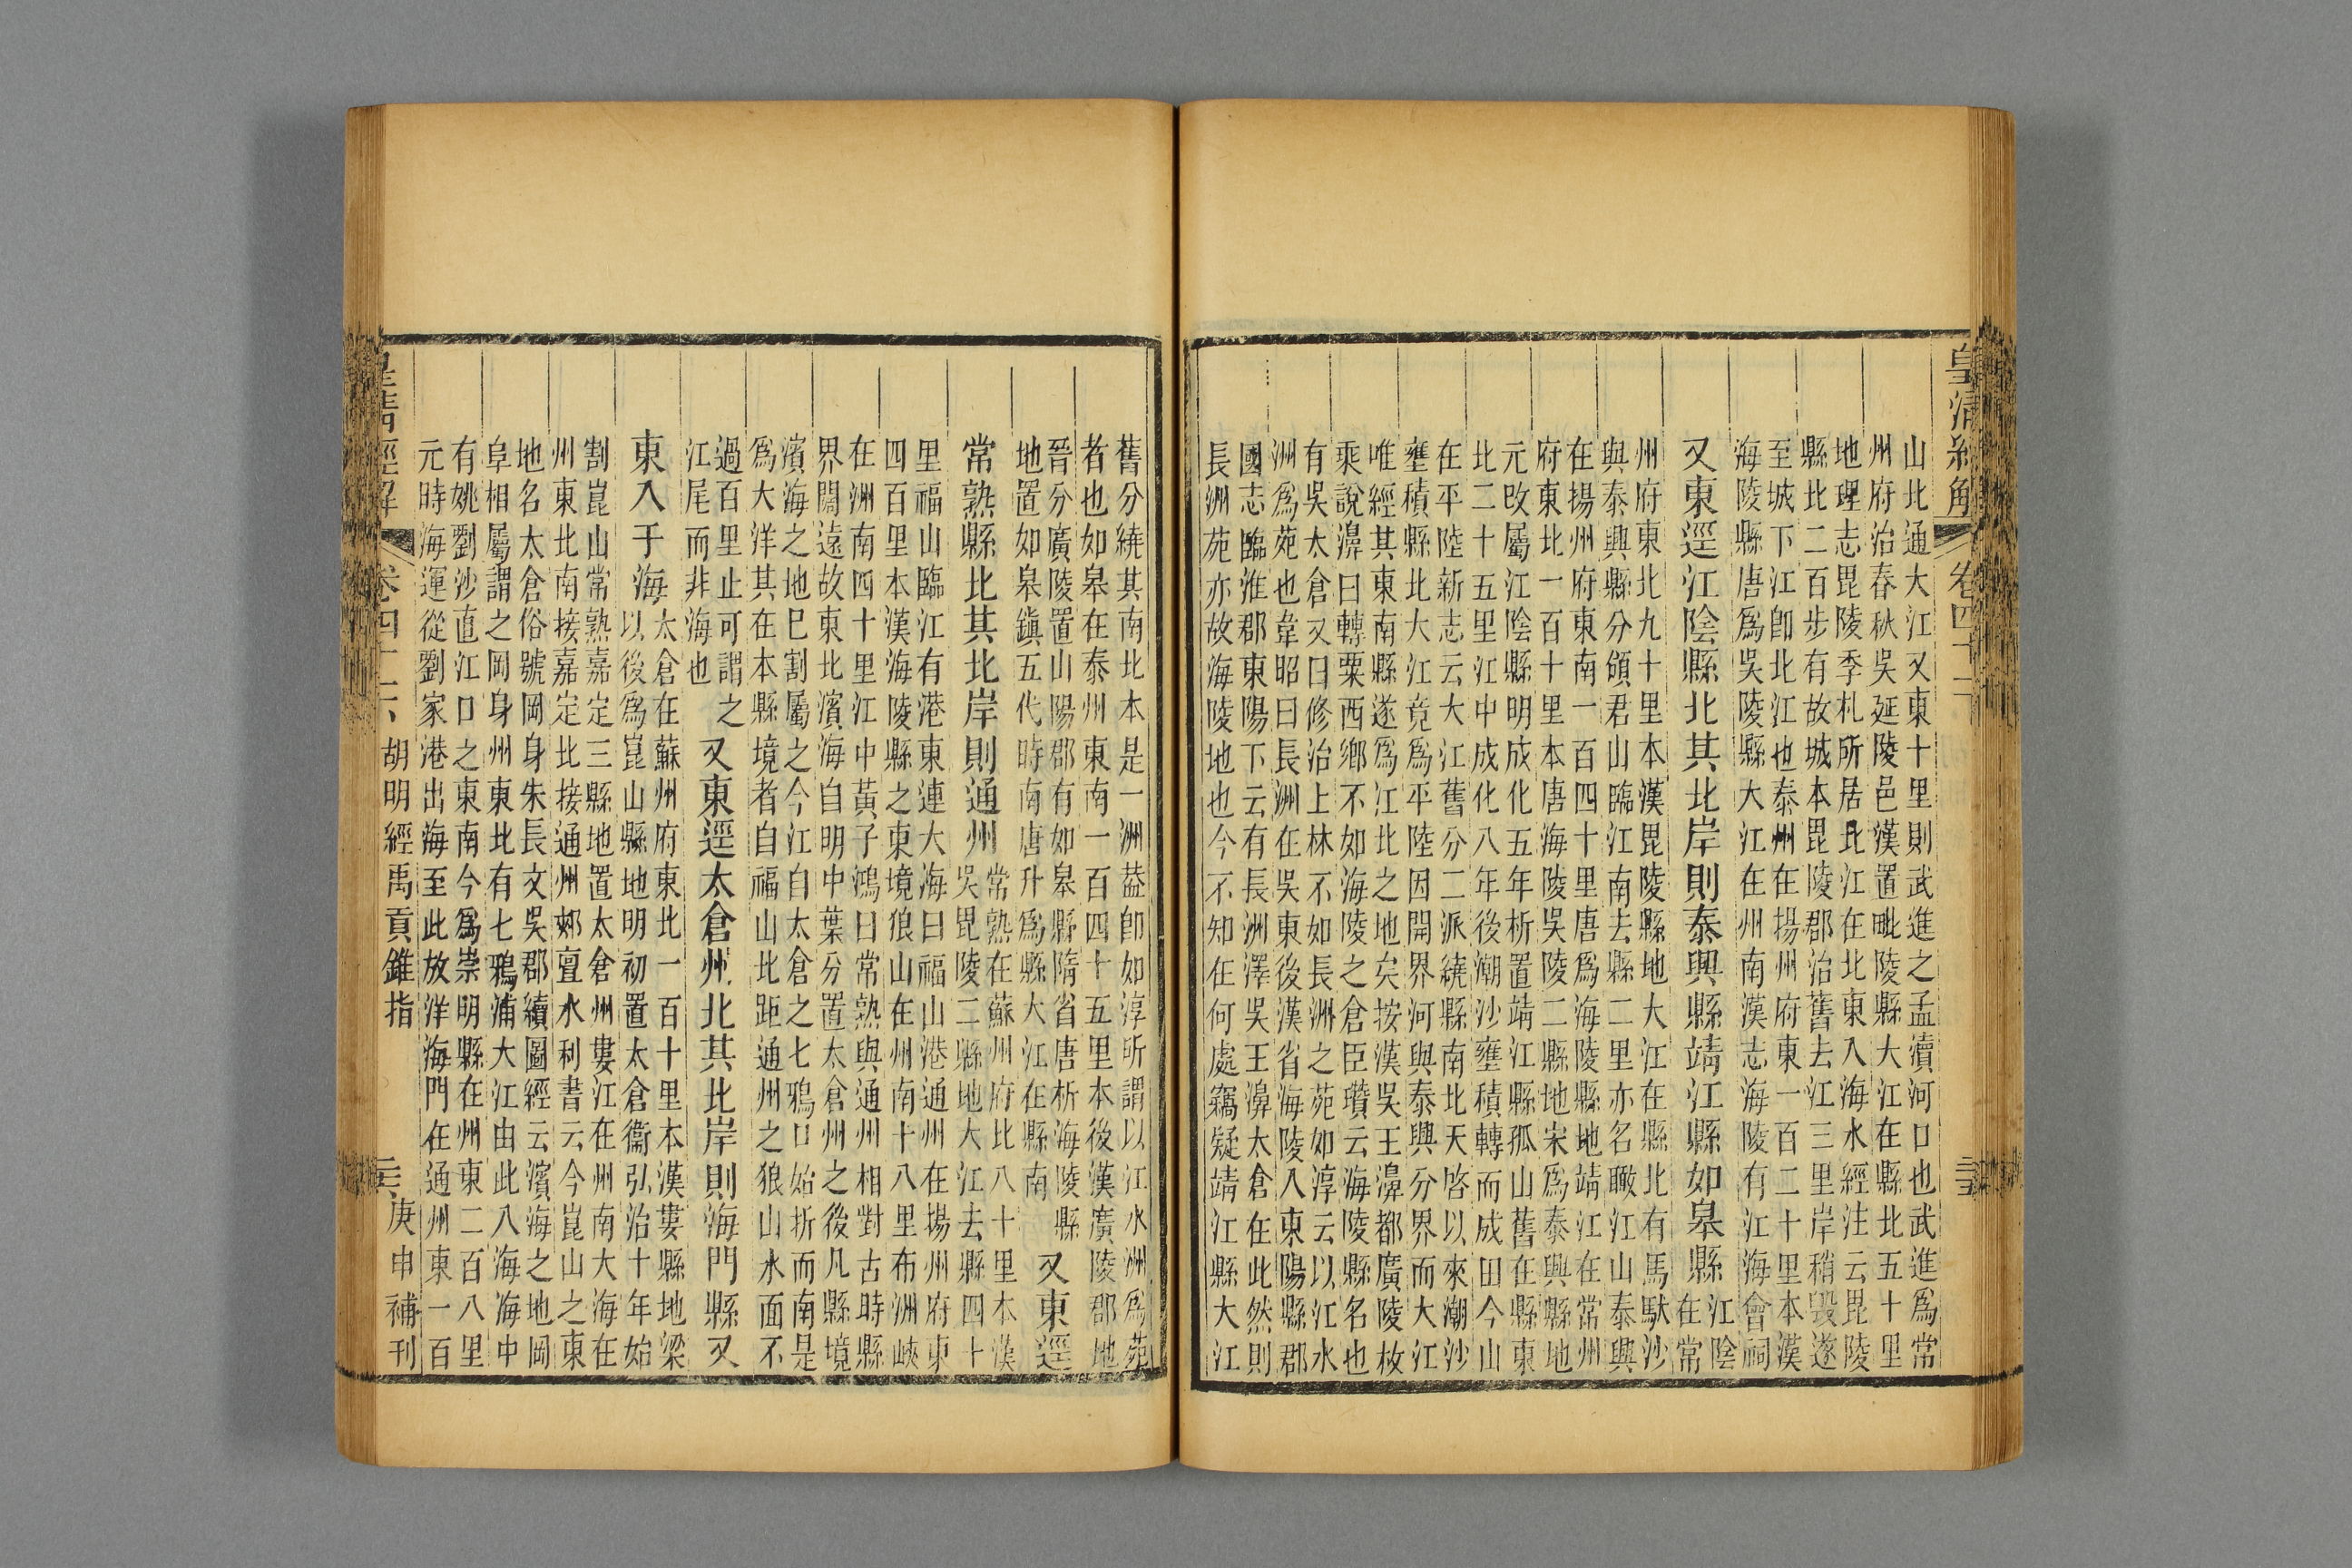 皇清經解 卷四十二
山北通大江又東十里則武進之孟瀆河口也武進爲常
州府治春秋吳延陵邑漢置毗陵縣大江在縣北五十里
地理志毘陵季札所居北江在北東入海水經注云毘陵
縣北二百步有故城本毘陵郡治舊去江三里岸稍毀遂
至城下江卽北江也泰州在揚州府東一百二十里本漢
海陵縣唐爲吳陵縣大江在州南漢志海陵有江海會祠
又東逕江陰縣北其北岸則泰興縣靖江縣如皋縣
江陰
在常
州府東北九十里本漢毘陵縣地大江在縣北有馬馱沙
與泰興縣分頟君山臨江南去縣二里亦名瞰江山泰興
在揚州府東南一百四十里唐爲海陵縣地靖江在常州
府東北一百十里本唐海陵吳陵二縣地宋爲泰興縣地
元改屬江陰縣明成化五年析置靖江縣孤山舊在縣東
北二十五里江中成化八年後潮沙壅積轉而成田今山
在平陸新志云大江舊分二派繞縣南北天啓以來潮沙
壅積縣北大江竟爲平陸因開界河與泰興分界而大江
唯經其東南縣遂爲江北之地矣按漢吳王濞都廣陵枚
乘說濞曰轉粟西鄉不如海陵之倉臣瓚云海陵縣名也
有吳太倉又曰修治上林不如長洲之苑如淳云以江水
洲爲苑也韋昭曰長洲在吳東後漢省海陵入東陽縣郡
國志臨淮郡東陽下云有長洲澤吳王濞太倉在此然則
長洲苑亦故海陵地也今不知在何處竊疑靖江縣大江
舊分繞其南北本是一洲葢卽如淳所謂以江水洲爲苑
者也如皋在泰州東南一百四十五里本後漢廣陵郡地
晉分廣陵置山陽郡有如皋縣隋省唐析海陵縣
地置如皋鎭五代時南唐升爲縣大江在縣南
又東逕
常熟縣北其北岸則通州
常熟在蘇州府北八十里本漢
吳毘陵二縣地大江去縣四十
里福山臨江有港東連大海曰福山港通州在揚州府東
四百里本漢海陵縣之東境狼山在州南十八里布洲峽
在洲南四十里江中黃子鴻曰常熟與通州相對古時縣
界闊遠故東北濱海自明中葉分置太倉州之後凡縣境
濱海之地已割屬之今江自太倉之七鴉口始折而南是
爲大洋其在本縣境者自福山北距通州之狼山水面不
過百里止可謂之
江尾而非海也
又東逕太倉州北其北岸則海門縣又
東入于海
太倉在蘇州府東北一百十里本漢婁縣地梁
以後爲崑山縣地明初置太倉衞弘治十年始
割崑山常熟嘉定三縣地置太倉州婁江在州南大海在
州東北南接嘉定北接通州郟亶水利書云今崑山之東
地名太倉俗號岡身朱長文吳郡續圖經云濱海之地岡
阜相屬謂之岡身州東北有七鴉浦大江由此入海海中
有姚劉沙直江口之東南今爲崇明縣在州東二百八里
元時海運從劉家港出海至此放洋海門在通州東一百
皇清經解 卷四十二 胡明經禹貢錐指 庚申補刊